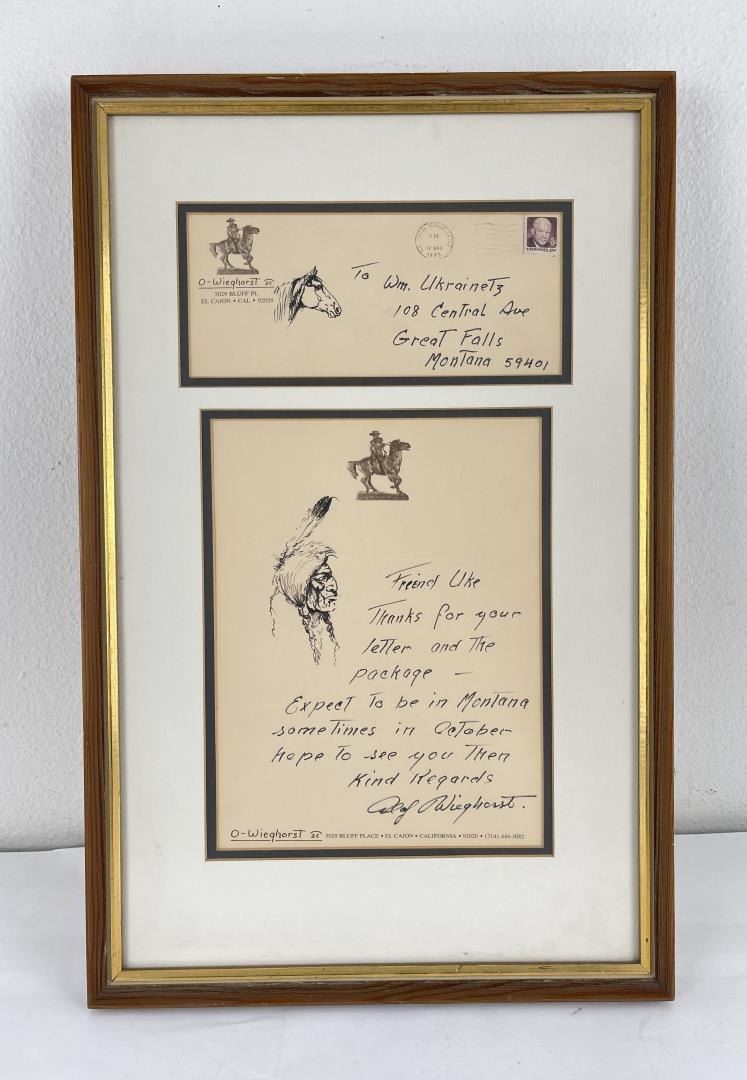 O-Wieghorst
5029 BLUFF PL
EL CAJON • CAL • 92020
PM
To Wm. Ukrainetz
108 Central Ave
Great Falls
Montana 59401
Freind Uke
Thanks for your
letter and the
package —
Expect to be in Montana
sometimes in October
hope to see you then
Kind Regards
Olaf Wieghorst.
O-Wieghorst 5029 BLUFF PLACE • EL CAJON • CALIFORNIA • 92020 • (714) 444-3082